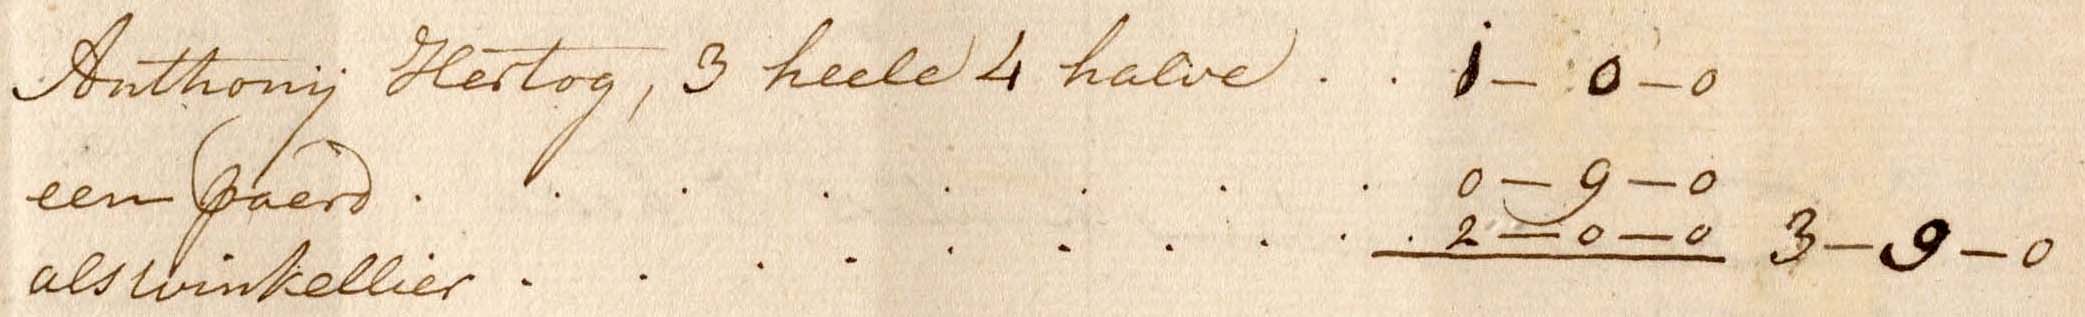 Anthonij Hertog, 3 heele 4 halve . . 1 – 0 – 0
een paerd . . . . . . . . 0 – 9 – 0
als winkellier . . . . . . . . . 2 – 0 – 0 3 – 9 – 0